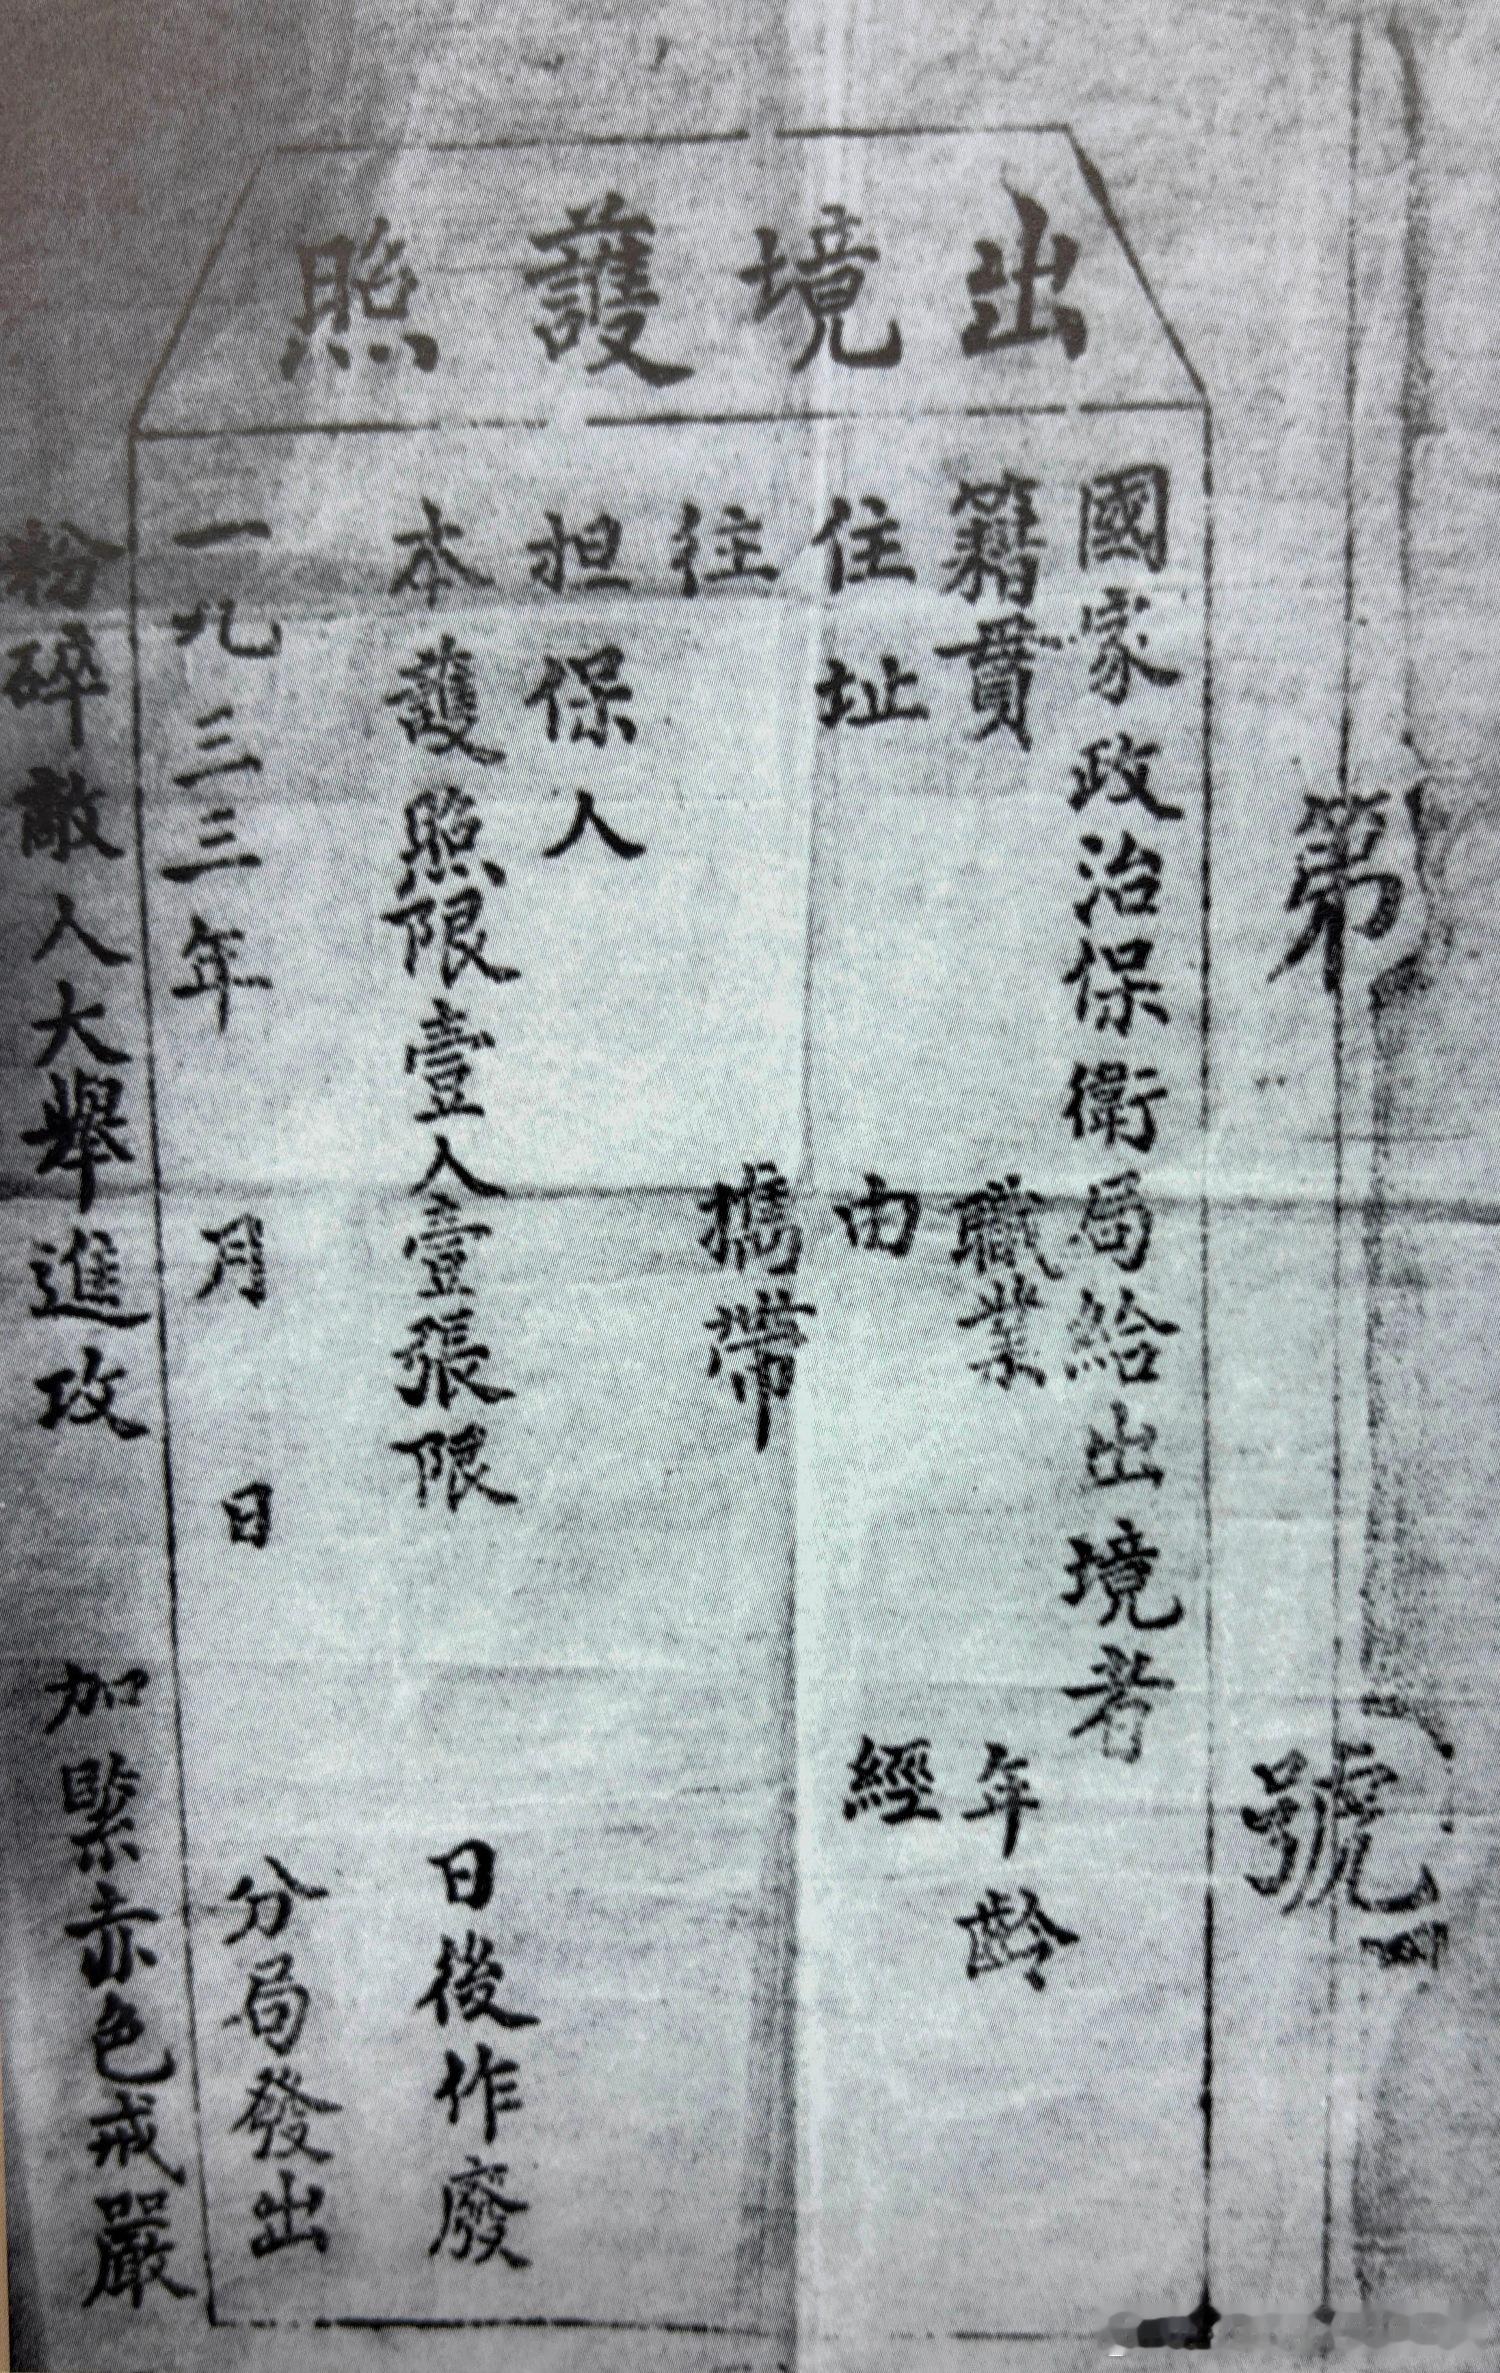 第　號
出境護照
國家政治保衛局給出境者
籍貫　職業　年齡
住址　由　經
往　攜帶
担保人
本護照限壹人壹張限　日後作廢
一九三三年　月　日　分局發出
粉碎敵人大舉進攻　加緊赤色戒嚴